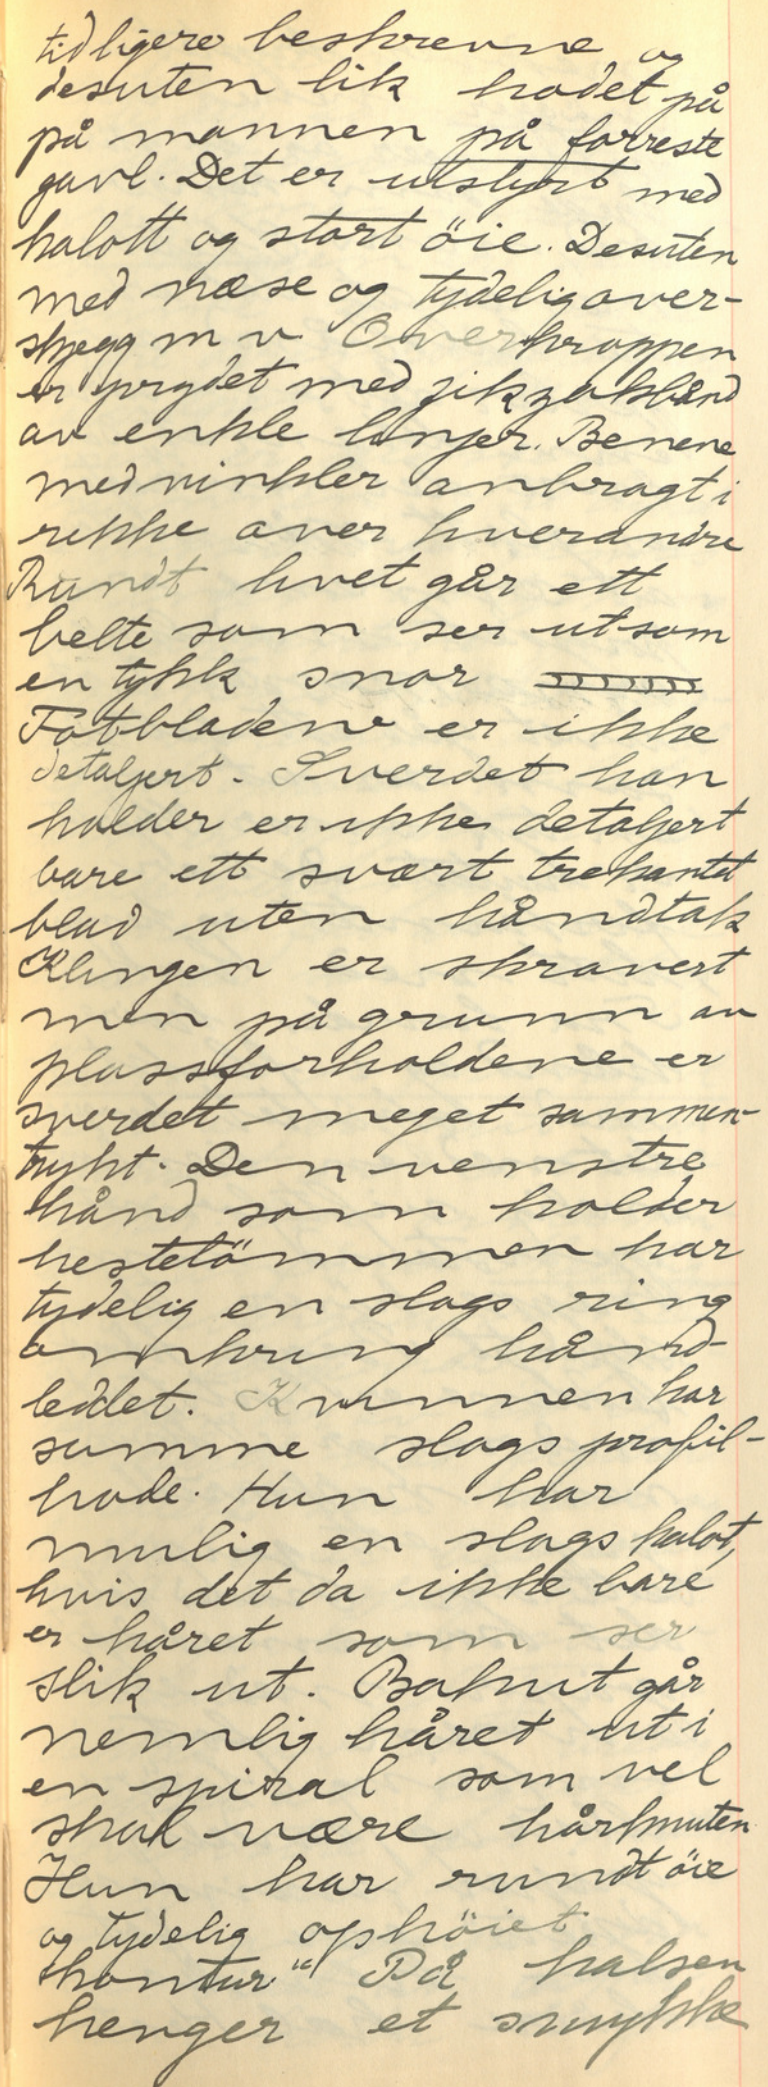 tidligere beskrevne og
desuten lik hodet på
på mannen på forreste
gavl. Det er utstyrt med
kalott og stort öie. Desuten
med næse og tydelig over-
skjegg m v Overkroppen
er prydet med zikzakbånd
av enkle linjer. Benene
med vinkler anbragt i
rekke over hverandre
Rundt livet går ett
belte som ser ut som
en tykk snor
Fotbladene er ikke
detaljert. Sverdet han
holder er ikke detaljert
bare ett svært trekantet
blad uten håndtak
Klingen er skravert
men på grunn av
plassforholdene er
sverdet meget sammen-
trykt. Den venstre
hånd som holder
hestetömmen har
tydelig en slags ring
omkring hånd-
leddet. Kvinnen har
samme slags profil-
hode. Hun har
mulig en slags kalot,
hvis det da ikke bare
er håret som ser
slik ut. Bakut går
nemlig håret ut i
en spiral som vel
skal være hårknuten
Hun har rundt öie
og tydelig ophöiet
"kontur" På halsen
henger et smykke